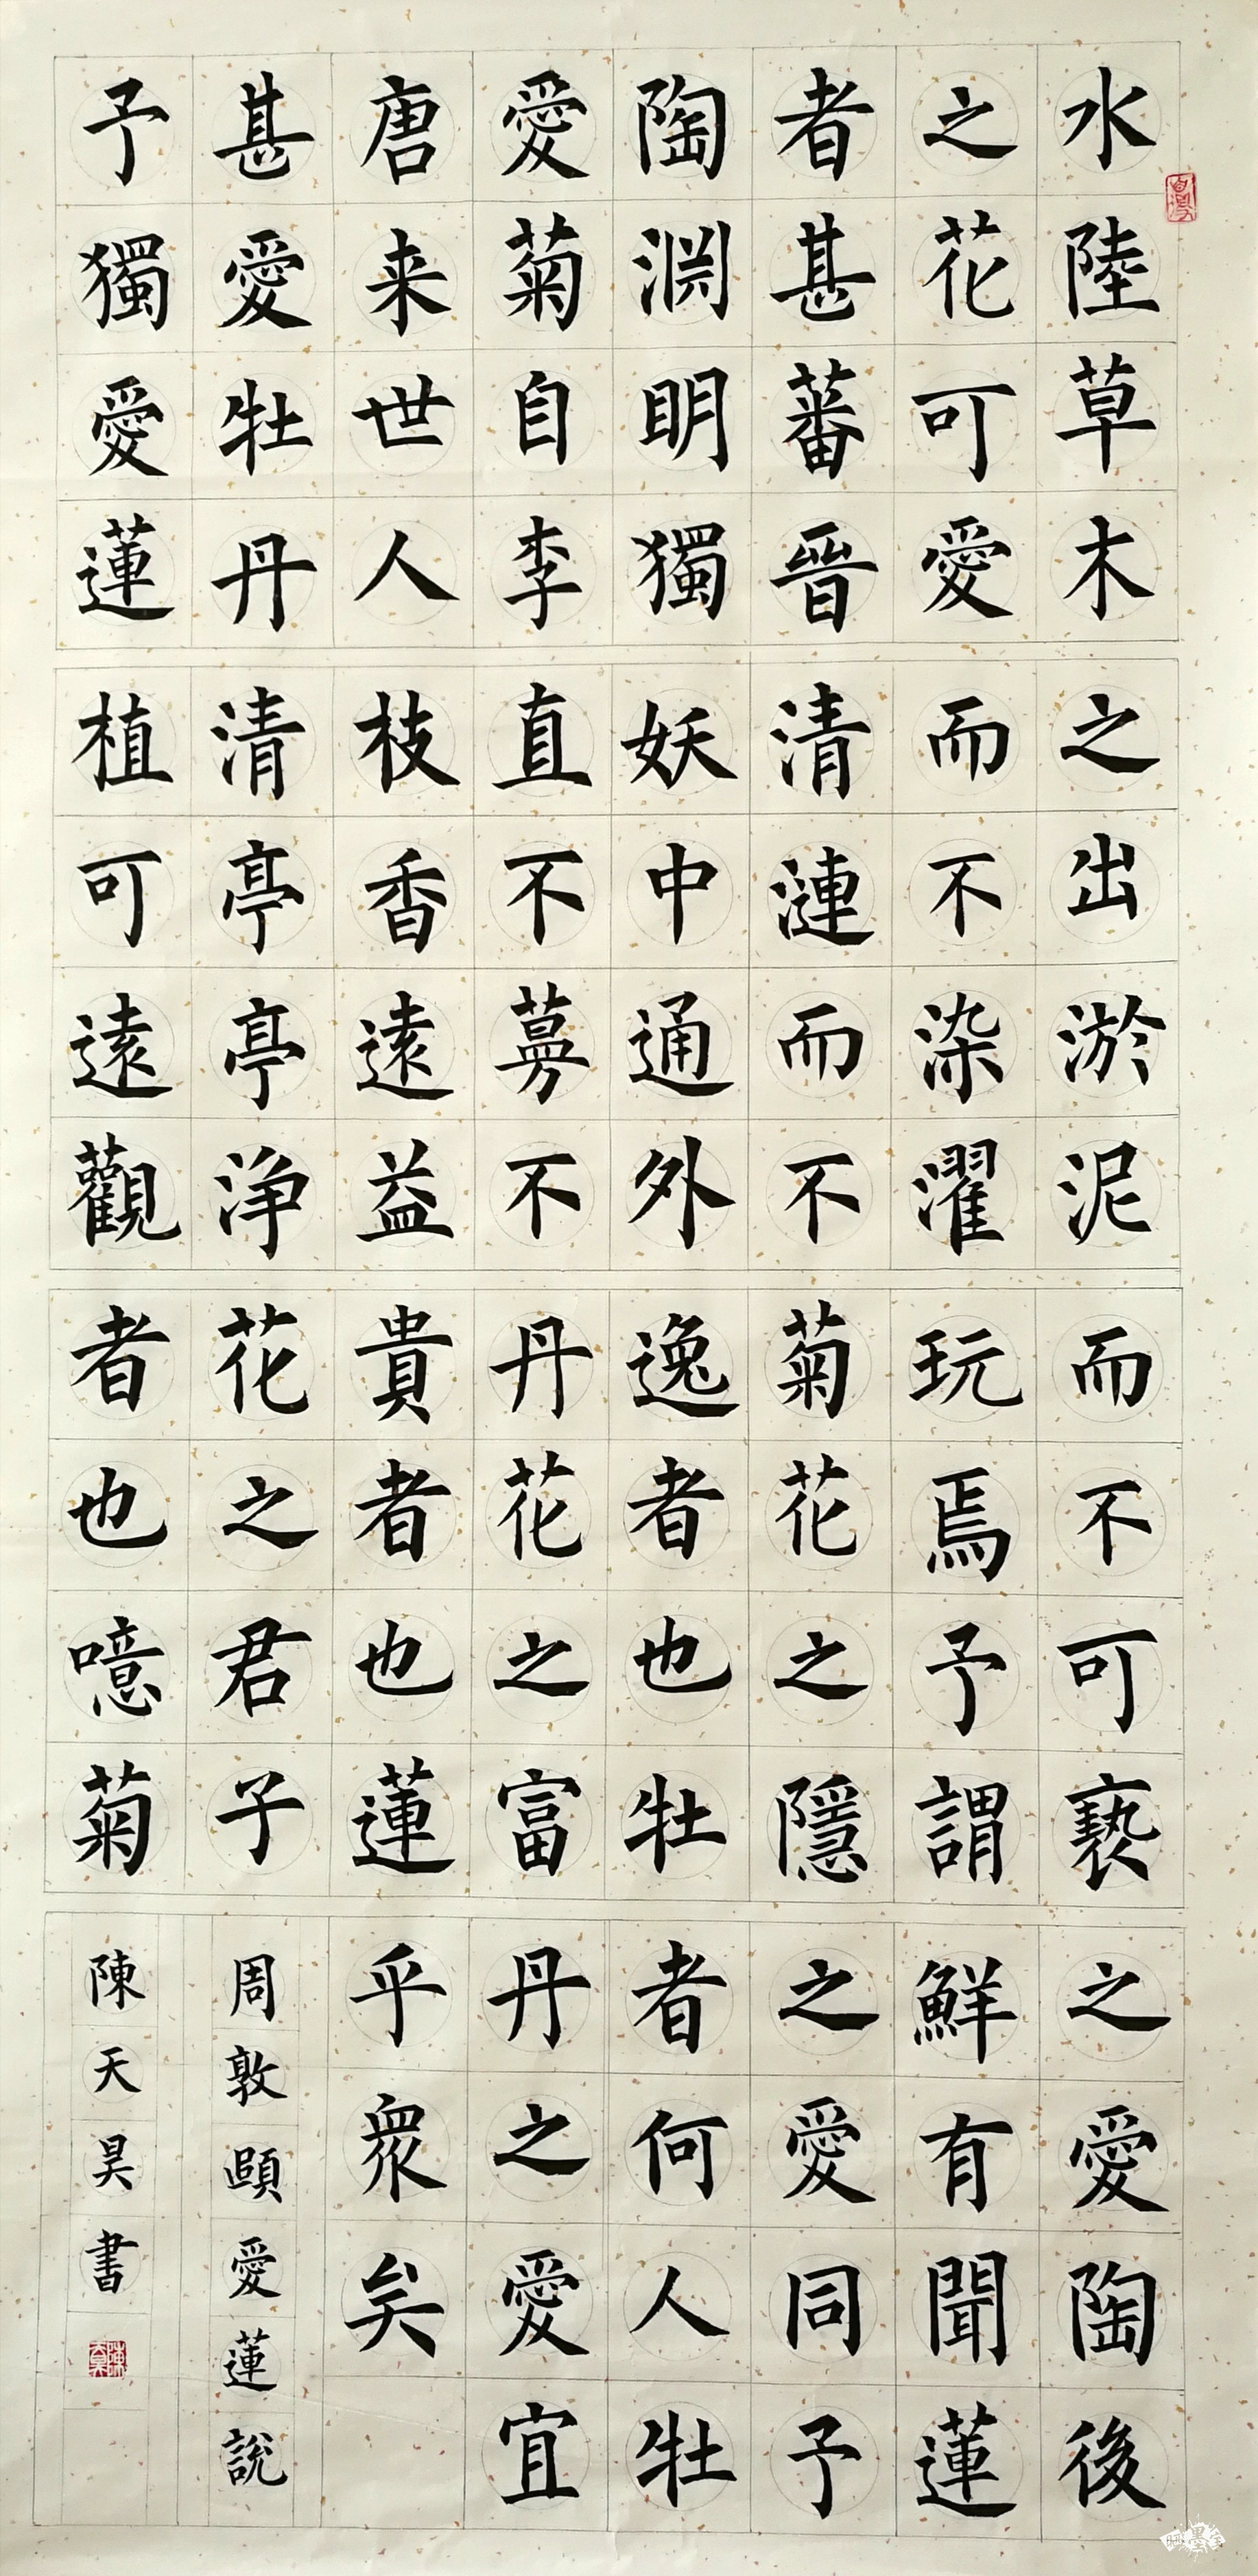 水陸草木
之花可愛
者甚蕃晉
陶渊明獨
愛菊自李
唐来世人
甚愛牡丹
予獨愛蓮
之出淤泥
而不染濯
清漣而不
妖中通外
直不蔓不
枝香遠益
清亭亭净
植可遠觀
而不可褻
玩焉予謂
菊花之隱
逸者也牡
丹花之富
貴者也蓮
花之君子
者也噫菊
之愛陶後
鮮有聞蓮
之愛同予
者何人牡
丹之愛宜
乎衆矣
周敦頤愛蓮説
陳天昊書
陳天昊